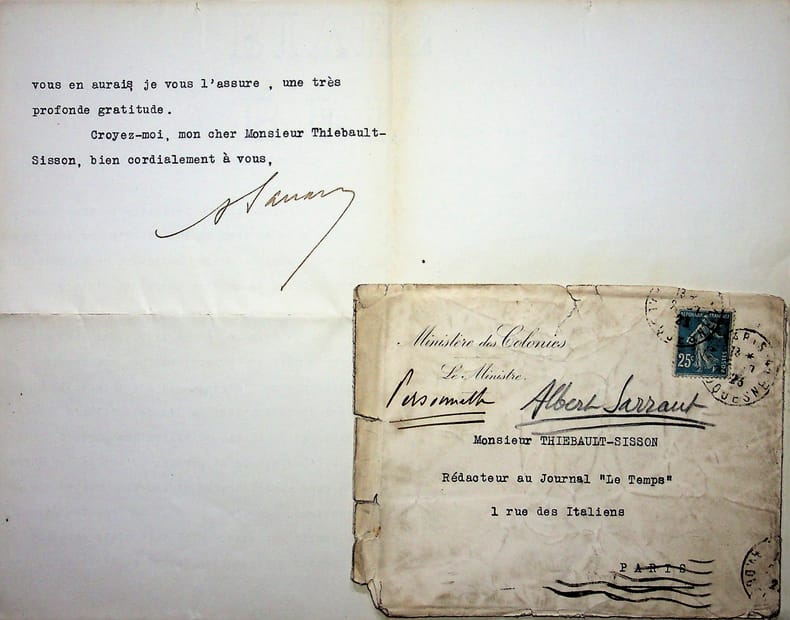 vous en aurais je vous l'assure , une très
profonde gratitude.
Croyez-moi, mon cher Monsieur Thiebault-
Sisson, bien cordialement à vous,
A Sarraut
Ministère des Colonies
Le Ministre
Personnelle
Albert Sarraut
25c
PARIS
23
Monsieur THIEBAULT-SISSON
Rédacteur au Journal "Le Temps"
1 rue des Italiens
PARIS